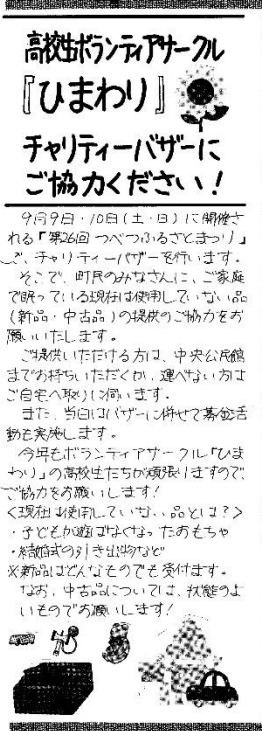 高校生ボランティアサークル
『ひまわり』
チャリティーバザーに
ご協力ください!
9月9日・10日(土・日)に開催さ
れる「第26回 つべつふるさとまつり」
で、チャリティーバザーを行います。
そこで、町民のみなさんに、ご家庭
で眠っている現在は使用していない品
(新品・中古品)の提供のご協力をお
願いいたします。
ご提供いただける方は、中央公民館
までお持ちいただくか、運べない方は
ご自宅へ取りに伺います。
また、当日はバザーに併せて募金活
動も実施します。
今年もボランティアサークル「ひま
わり」の高校生たちが頑張りますので、
ご協力をお願いします!
<現在は使用していない品とは?>
・子どもが遊ばなくなったおもちゃ
・結婚式の引き出物など
※新品はどんなものでも受付ます。
なお、中古品については、状態のよ
いものでお願いします!